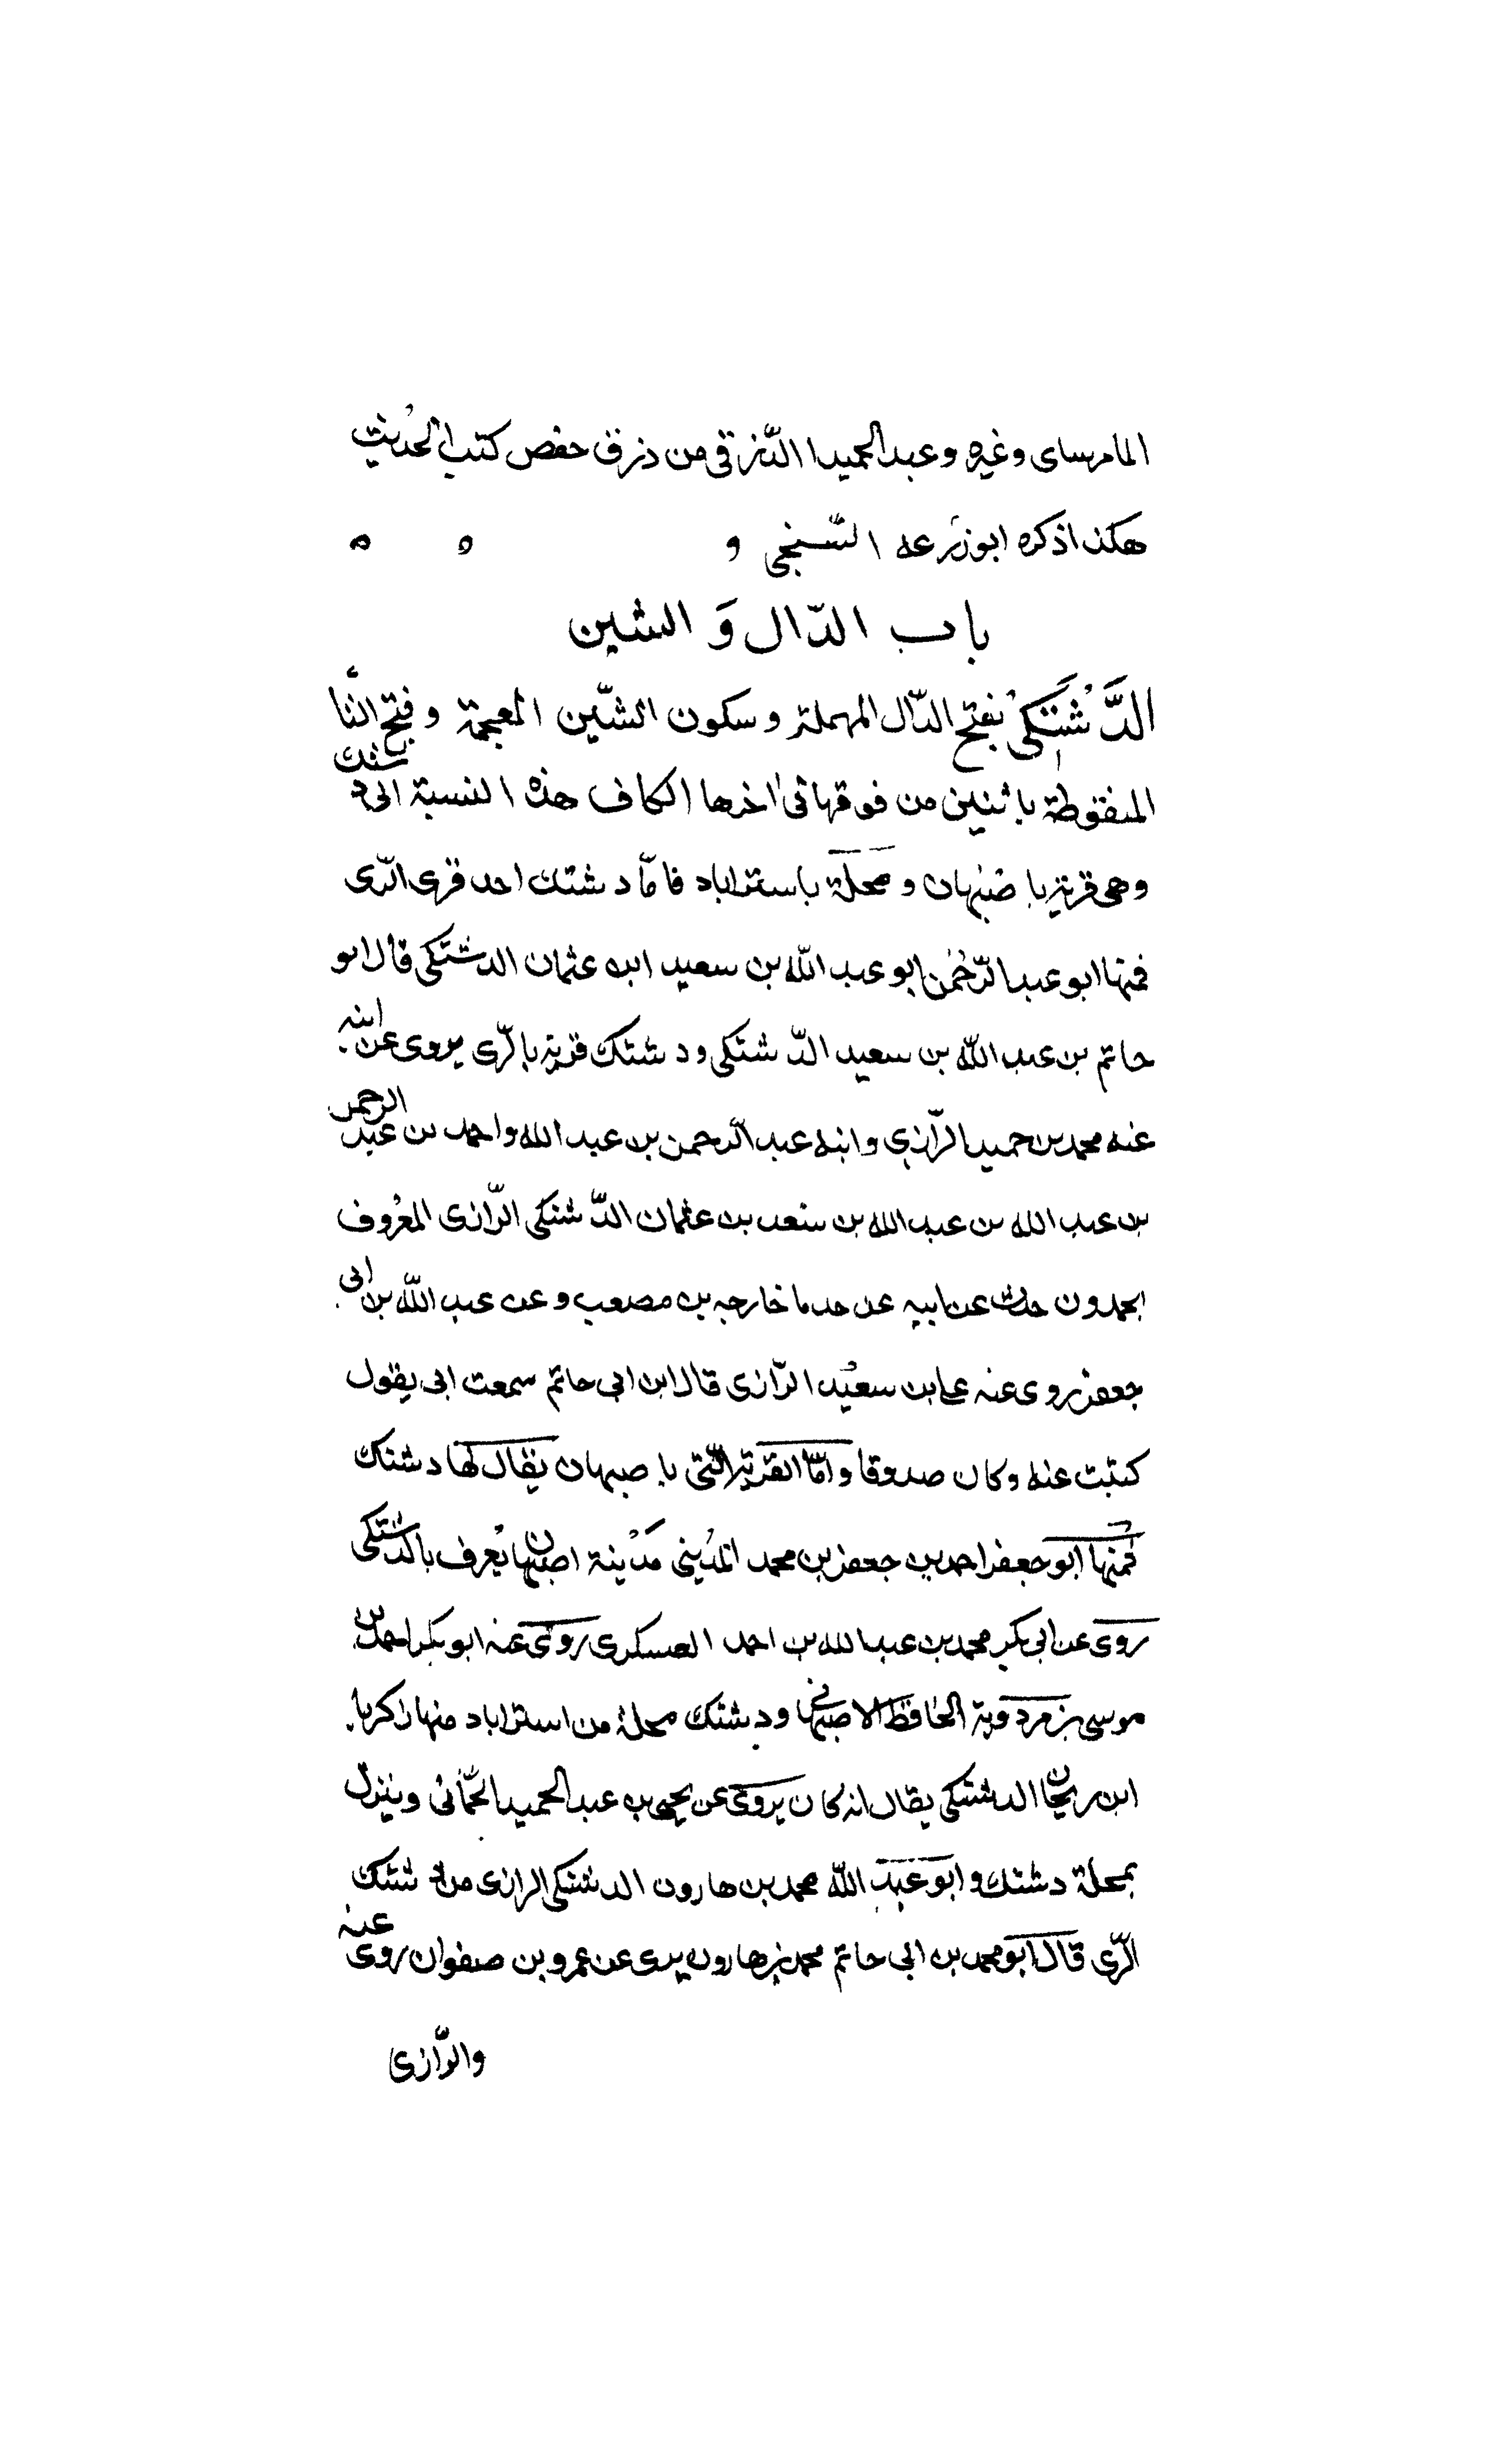 المامرساى وغيره وعبد الحميد الدّزقى من دزق حفص كتب الحديث
هكذا ذكره ابو زرعه السّنجى و ه ه
باب الدّال وَ الشين
الدَّشْتَكىُ بفتح الدّال المهملة وسكون الشّين المعجمة وفتح التّا
المنقوطة باثنين من فوقها فى اخرها الكاف هذه النسبة الى دشتك
وهى قرية باصبهان ومحلة باستراباد فامّا دشتك احد قرى الرّى
فمنها ابو عبد الرّحمٰن ابو عبد اللّه بن سعيد ابن عثمان الدشتكى قال ابو
حاتم بن عبد اللّه بن سعيد الدّشتكى ودشتك قرية بالرّى يروى عن ابيه
عنه محمد بن حميد الرّازى وابنه عبد الرّحمن بن عبد الله واحمد بن عبد الرحمن
بن عبد الله بن عبد الله بن سعد بن عثمان الدّشتكى الرّازى المعروف
بحمدون حدث عن ابيه عن خارجه بن مصعب وعن عبد اللّه بن ابى
جعفر روى عنه على بن سعيد الرّازى قال ابن ابى حاتم سمعت ابى يقول
كتبت عنه وكان صدوقا وامّا القرية الّتى باصبهان يقال لها دشتك
فمنها ابو جعفر احمد بن جعفر بن محمد المدينى مَدينة اصبهان يعرف بالدشتكى
روى عن ابى بكر محمد بن عبد الله بن احمد العسكرى روى عنه ابو بكر احمد بن
موسى بن مردوية الحافظ الاصبهانى ودشتك محلة من استراباد منها زاكريا
ابن ريحان الدشتكى يقال انه كان يروى عن يحيى بن عبد الحميد الحمّانى وينزل
بمحلة دشتك وابو عبد اللّه محمد بن هارون الدشتكى الرازى من دشتك
الرّى قال ابو محمد بن ابى حاتم محمد بن هارون يروى عن عمرو بن صفوان روى عنه
والرّازى